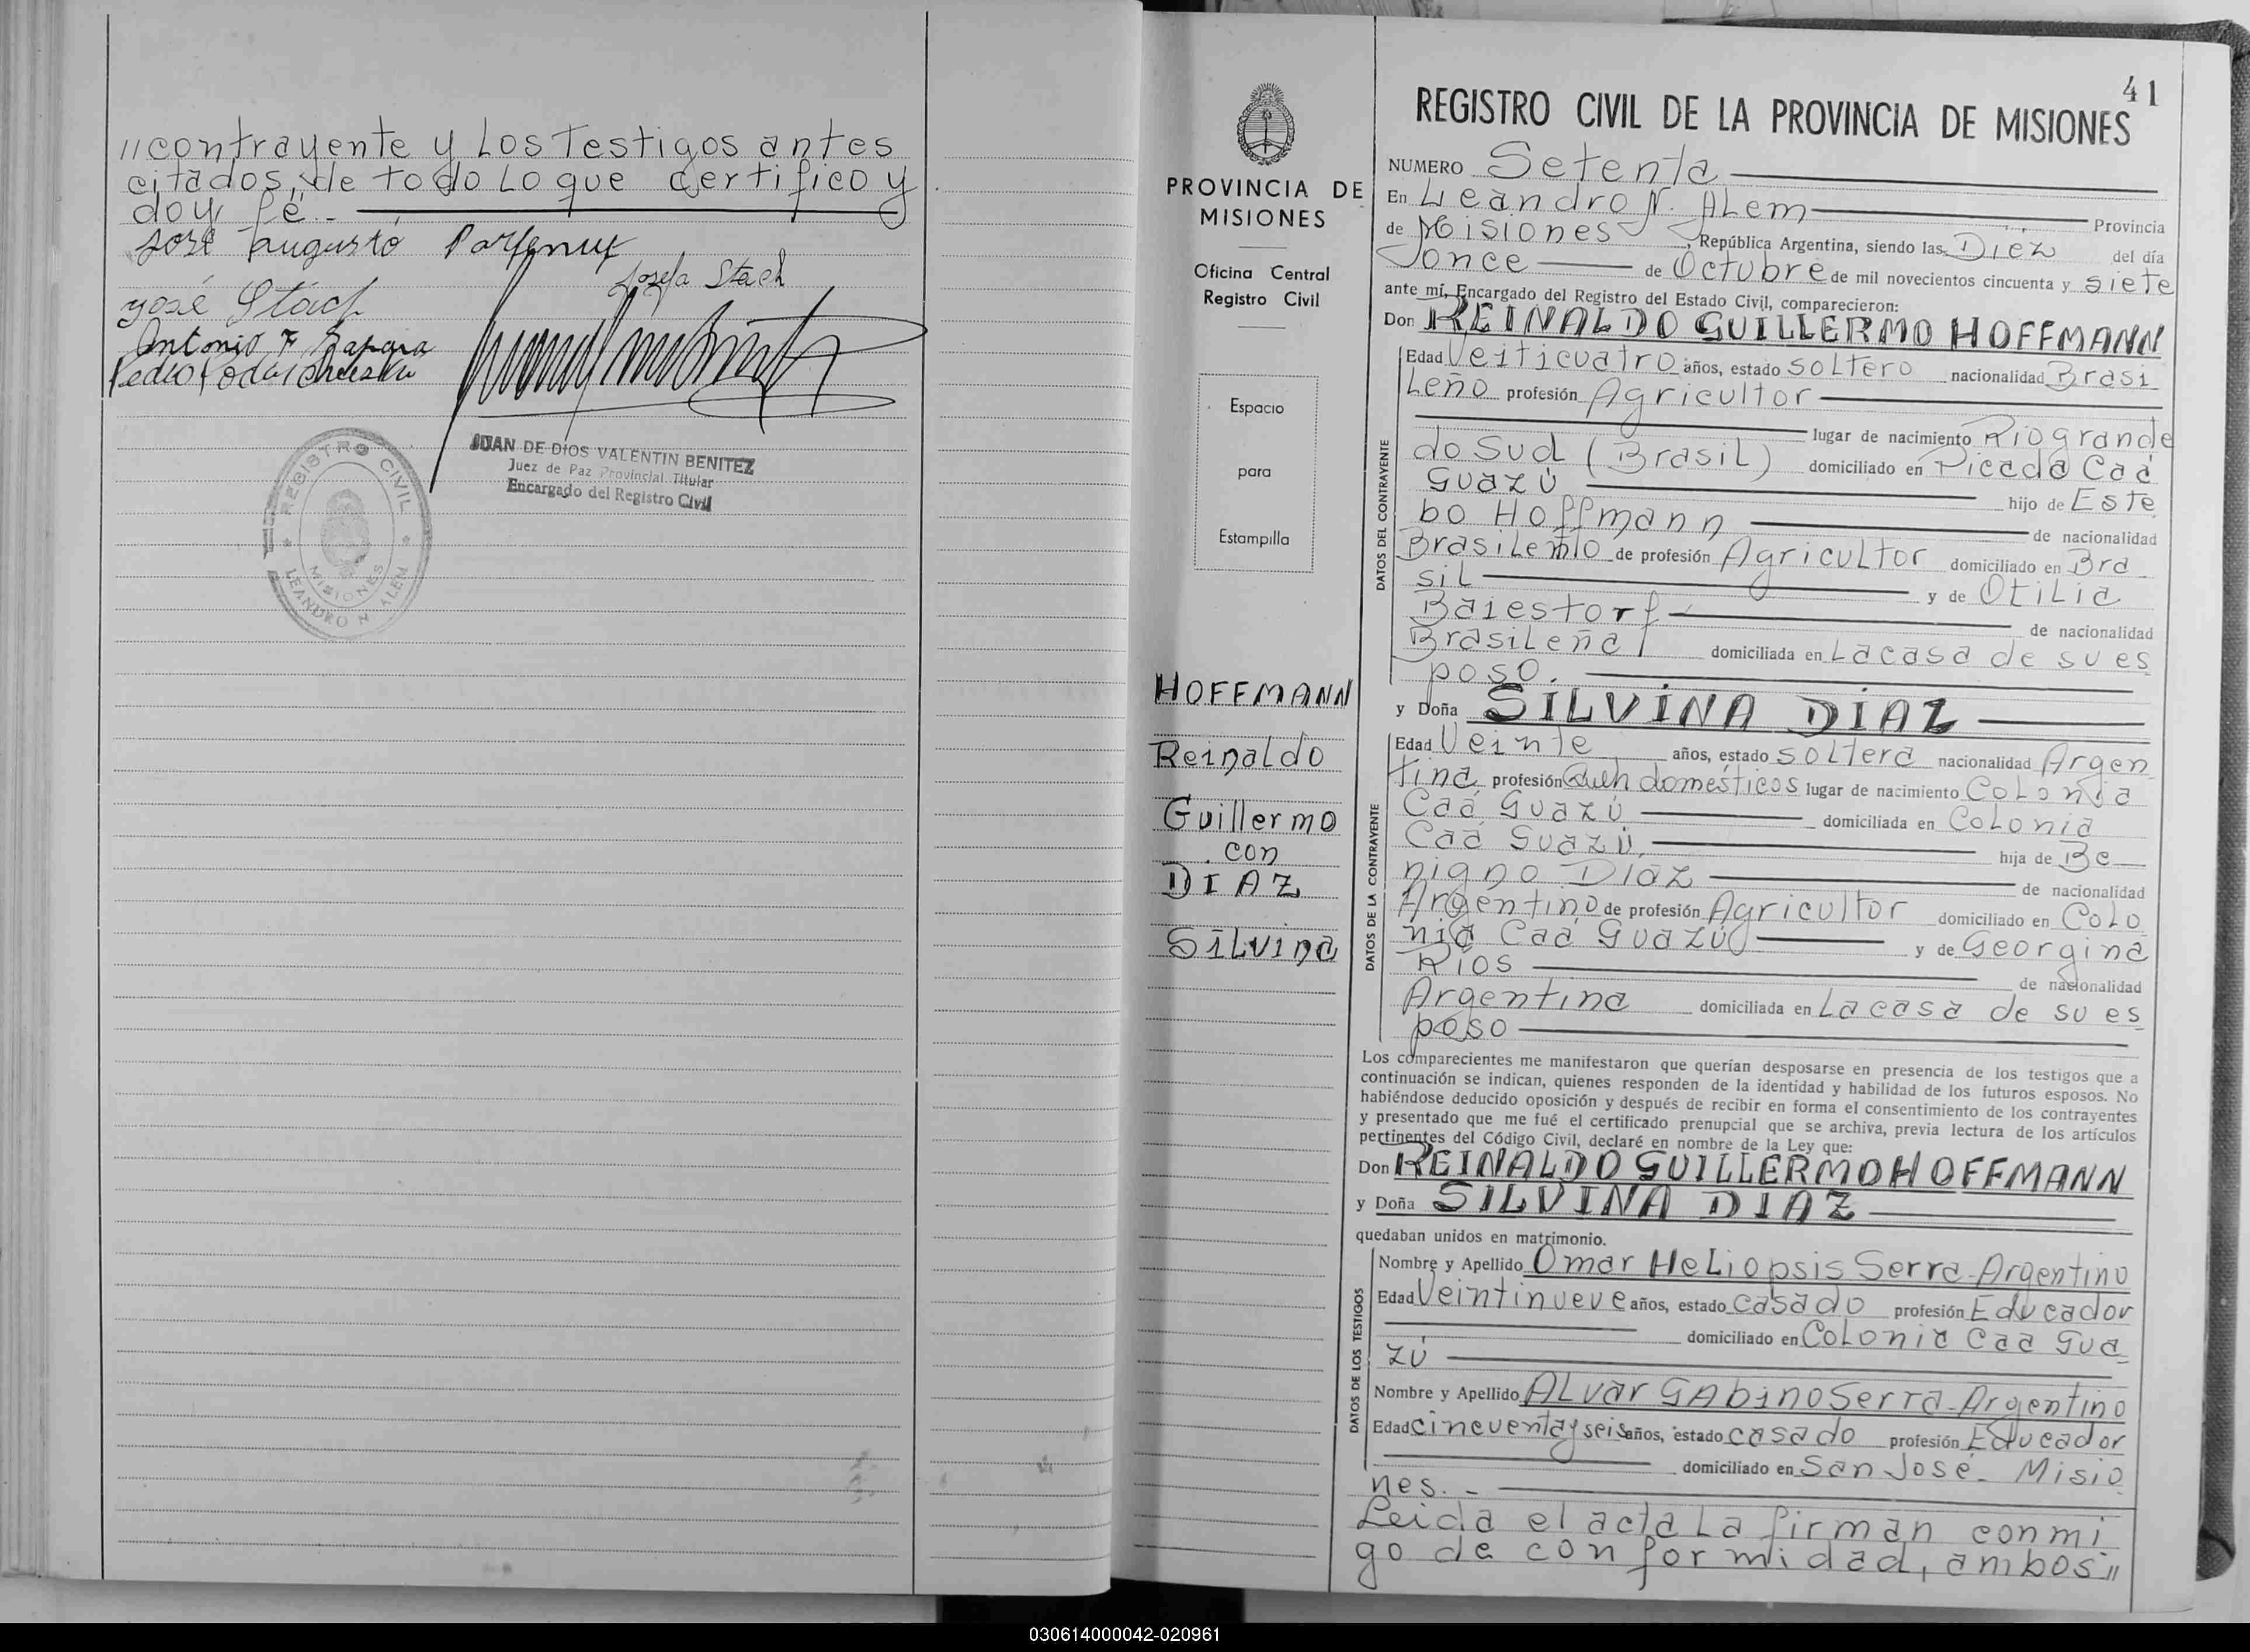 //contrayente y Los Testigos antes
citados, de todo Lo que certifico y
doy fé.-
José Augusto
Josefa Stach
José Stach
Antonio F. Zapara
Pedro
JUAN DE DIOS VALENTIN BENITEZ
Juez de Paz Provincial Titular
Encargado del Registro Civil
REGISTRO CIVIL
MISIONES
LEANDRO N. ALEM
PROVINCIA DE
MISIONES
Oficina Central
Registro Civil
Espacio
para
Estampilla
HOFFMANN
Reinaldo
Guillermo
con
DIAZ
SiLvina
41
REGISTRO CIVIL DE LA PROVINCIA DE MISIONES
NUMERO Setenta
En Leandro N. ALem Provincia
de Misiones, República Argentina, siendo las Diéz del día
once de Octubre de mil novecientos cincuenta y siete
ante mí, Encargado del Registro del Estado Civil, comparecieron:
Don REINALDO GUILLERMO HOFFMANN
DATOS DEL CONTRAYENTE
Edad Veiticuatro años, estado soltero nacionalidad Brasi
Leño profesión Agricultor
lugar de nacimiento Riogrande
do Sud (Brasil) domiciliado en Picada Caá
Guazú hijo de Este
bo Hoffmann de nacionalidad
Brasileño de profesión Agricultor domiciliado en Bra
sil y de Otilia
Baiestorf de nacionalidad
Brasileña domiciliada en La casa de su es
poso.
y Doña SILVINA DIAZ
DATOS DE LA CONTRAYENTE
Edad Veinte años, estado soltera nacionalidad Argen
tina profesión Queh domésticos lugar de nacimiento Colonia
Caá Guazú domiciliada en Colonia
Caá Guazú, hija de Be
nigno Díaz de nacionalidad
Argentino de profesión Agricultor domiciliado en Colo
nia Caá Guazú y de Georgina
Ríos de nacionalidad
Argentina domiciliada en La casa de su es
poso
Los comparecientes me manifestaron que querían desposarse en presencia de los testigos que a
continuación se indican, quienes responden de la identidad y habilidad de los futuros esposos. No
habiéndose deducido oposición y después de recibir en forma el consentimiento de los contrayentes
y presentado que me fué el certificado prenupcial que se archiva, previa lectura de los artículos
pertinentes del Código Civil, declaré en nombre de la Ley que:
Don REINALDO GUILLERMO HOFFMANN
y Doña SILVINA DIAZ
quedaban unidos en matrimonio.
DATOS DE LOS TESTIGOS
Nombre y Apellido Omar Heliopsis Serra-Argentino
Edad Veintinueve años, estado casado profesión Educador
domiciliado en Colonia Caá Gua
zú
Nombre y Apellido ALvar GAbino Serra-Argentino
Edad cincuenta y seis años, estado casado profesión Educador
domiciliado en San José- Misio
nes.-
Leida el acta La firman conmi
go de conformidad, ambos//
030614000042-020961